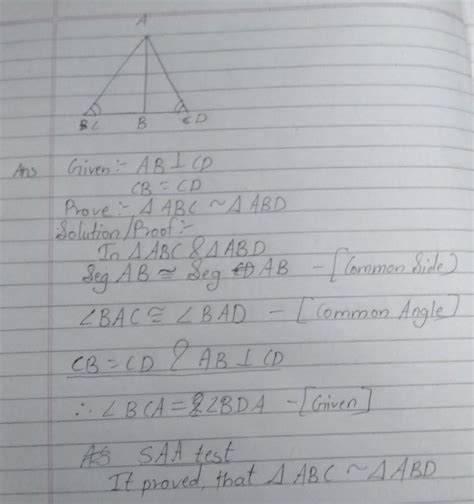 A
C B D
Ans Given:- AB ⊥ CD
CB = CD
Prove:- Δ ABC ~ Δ ABD
Solution/Proof:-
In Δ ABC & Δ ABD
Seg AB ≅ Seg AB - [Common Side]
∠BAC ≅ ∠BAD - [Common Angle]
CB = CD & AB ⊥ CD
∴ ∠BCA = ∠BDA - [Given]
As SAA test
It proved, that Δ ABC ~ Δ ABD